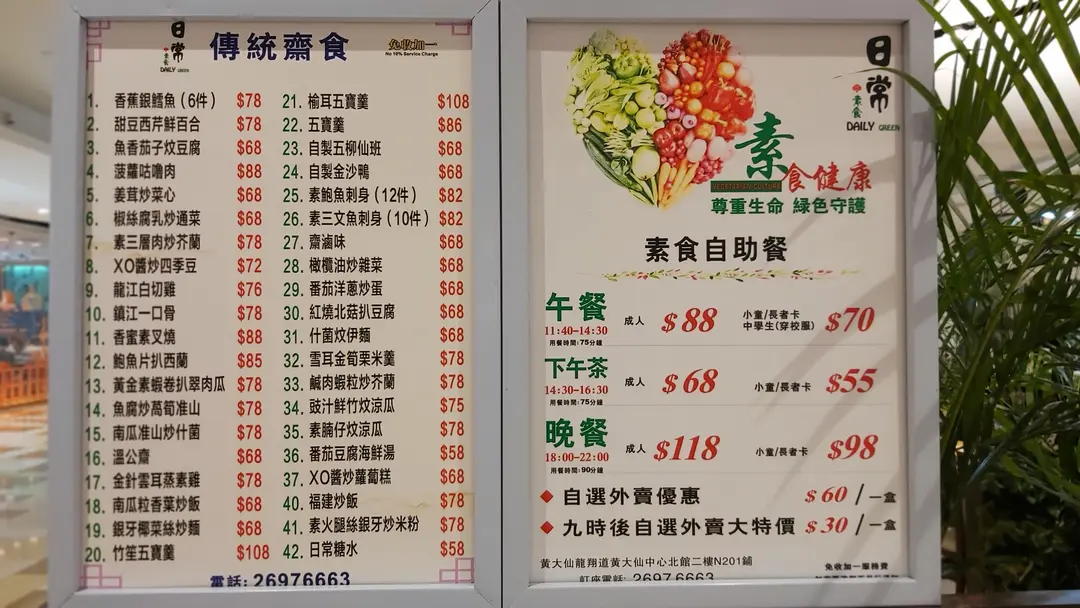 日常
素食
DAILY GREEN
傳統齋食
免收加一
No 10% Service Charge
1. 香蕉銀鱈魚（6件） $78
2. 甜豆西芹鮮百合 $78
3. 魚香茄子炆豆腐 $68
4. 菠蘿咕嚕肉 $88
5. 姜茸炒菜心 $68
6. 椒絲腐乳炒通菜 $68
7. 素三層肉炒芥蘭 $78
8. XO醬炒四季豆 $72
9. 龍江白切雞 $76
10. 鎮江一口骨 $78
11. 香蜜素叉燒 $88
12. 鮑魚片扒西蘭 $85
13. 黃金素蝦卷扒翠肉瓜 $78
14. 魚腐炒萵筍准山 $78
15. 南瓜准山炒什菌 $78
16. 溫公齋 $68
17. 金針雲耳蒸素雞 $78
18. 南瓜粒香葉炒飯 $68
19. 銀牙椰菜絲炒麵 $68
20. 竹笙五寶羹 $108
21. 榆耳五寶羹 $108
22. 五寶羹 $86
23. 自製五柳仙班 $68
24. 自製金沙鴨 $68
25. 素鮑魚刺身（12件） $82
26. 素三文魚刺身（10件） $82
27. 齋滷味 $68
28. 橄欖油炒雜菜 $68
29. 番茄洋蔥炒蛋 $68
30. 紅燒北菇扒豆腐 $68
31. 什菌炆伊麵 $68
32. 雪耳金筍粟米羹 $78
33. 鹹肉蝦粒炒芥蘭 $78
34. 豉汁鮮竹炆涼瓜 $75
35. 素腩仔炆涼瓜 $78
36. 番茄豆腐海鮮湯 $58
37. XO醬炒蘿蔔糕 $68
40. 福建炒飯 $78
41. 素火腿絲銀牙炒米粉 $78
42. 日常糖水 $58
電話: 26976663
日常
素食
DAILY GREEN
素食健康
VEGETARIAN CULTURE
尊重生命 綠色守護
素食自助餐
午餐 成人 $88 小童/長者卡 中學生(穿校服) $70
11:40-14:30
用餐時間:75分鐘
下午茶 成人 $68 小童/長者卡 $55
14:30-16:30
用餐時間:75分鐘
晚餐 成人 $118 小童/長者卡 $98
18:00-22:00
用餐時間:90分鐘
◆ 自選外賣優惠 $60/一盒
◆ 九時後自選外賣大特價 $30/一盒
黃大仙龍翔道黃大仙中心北館二樓N201鋪
訂座電話: 2697 6663
免收加一服務費